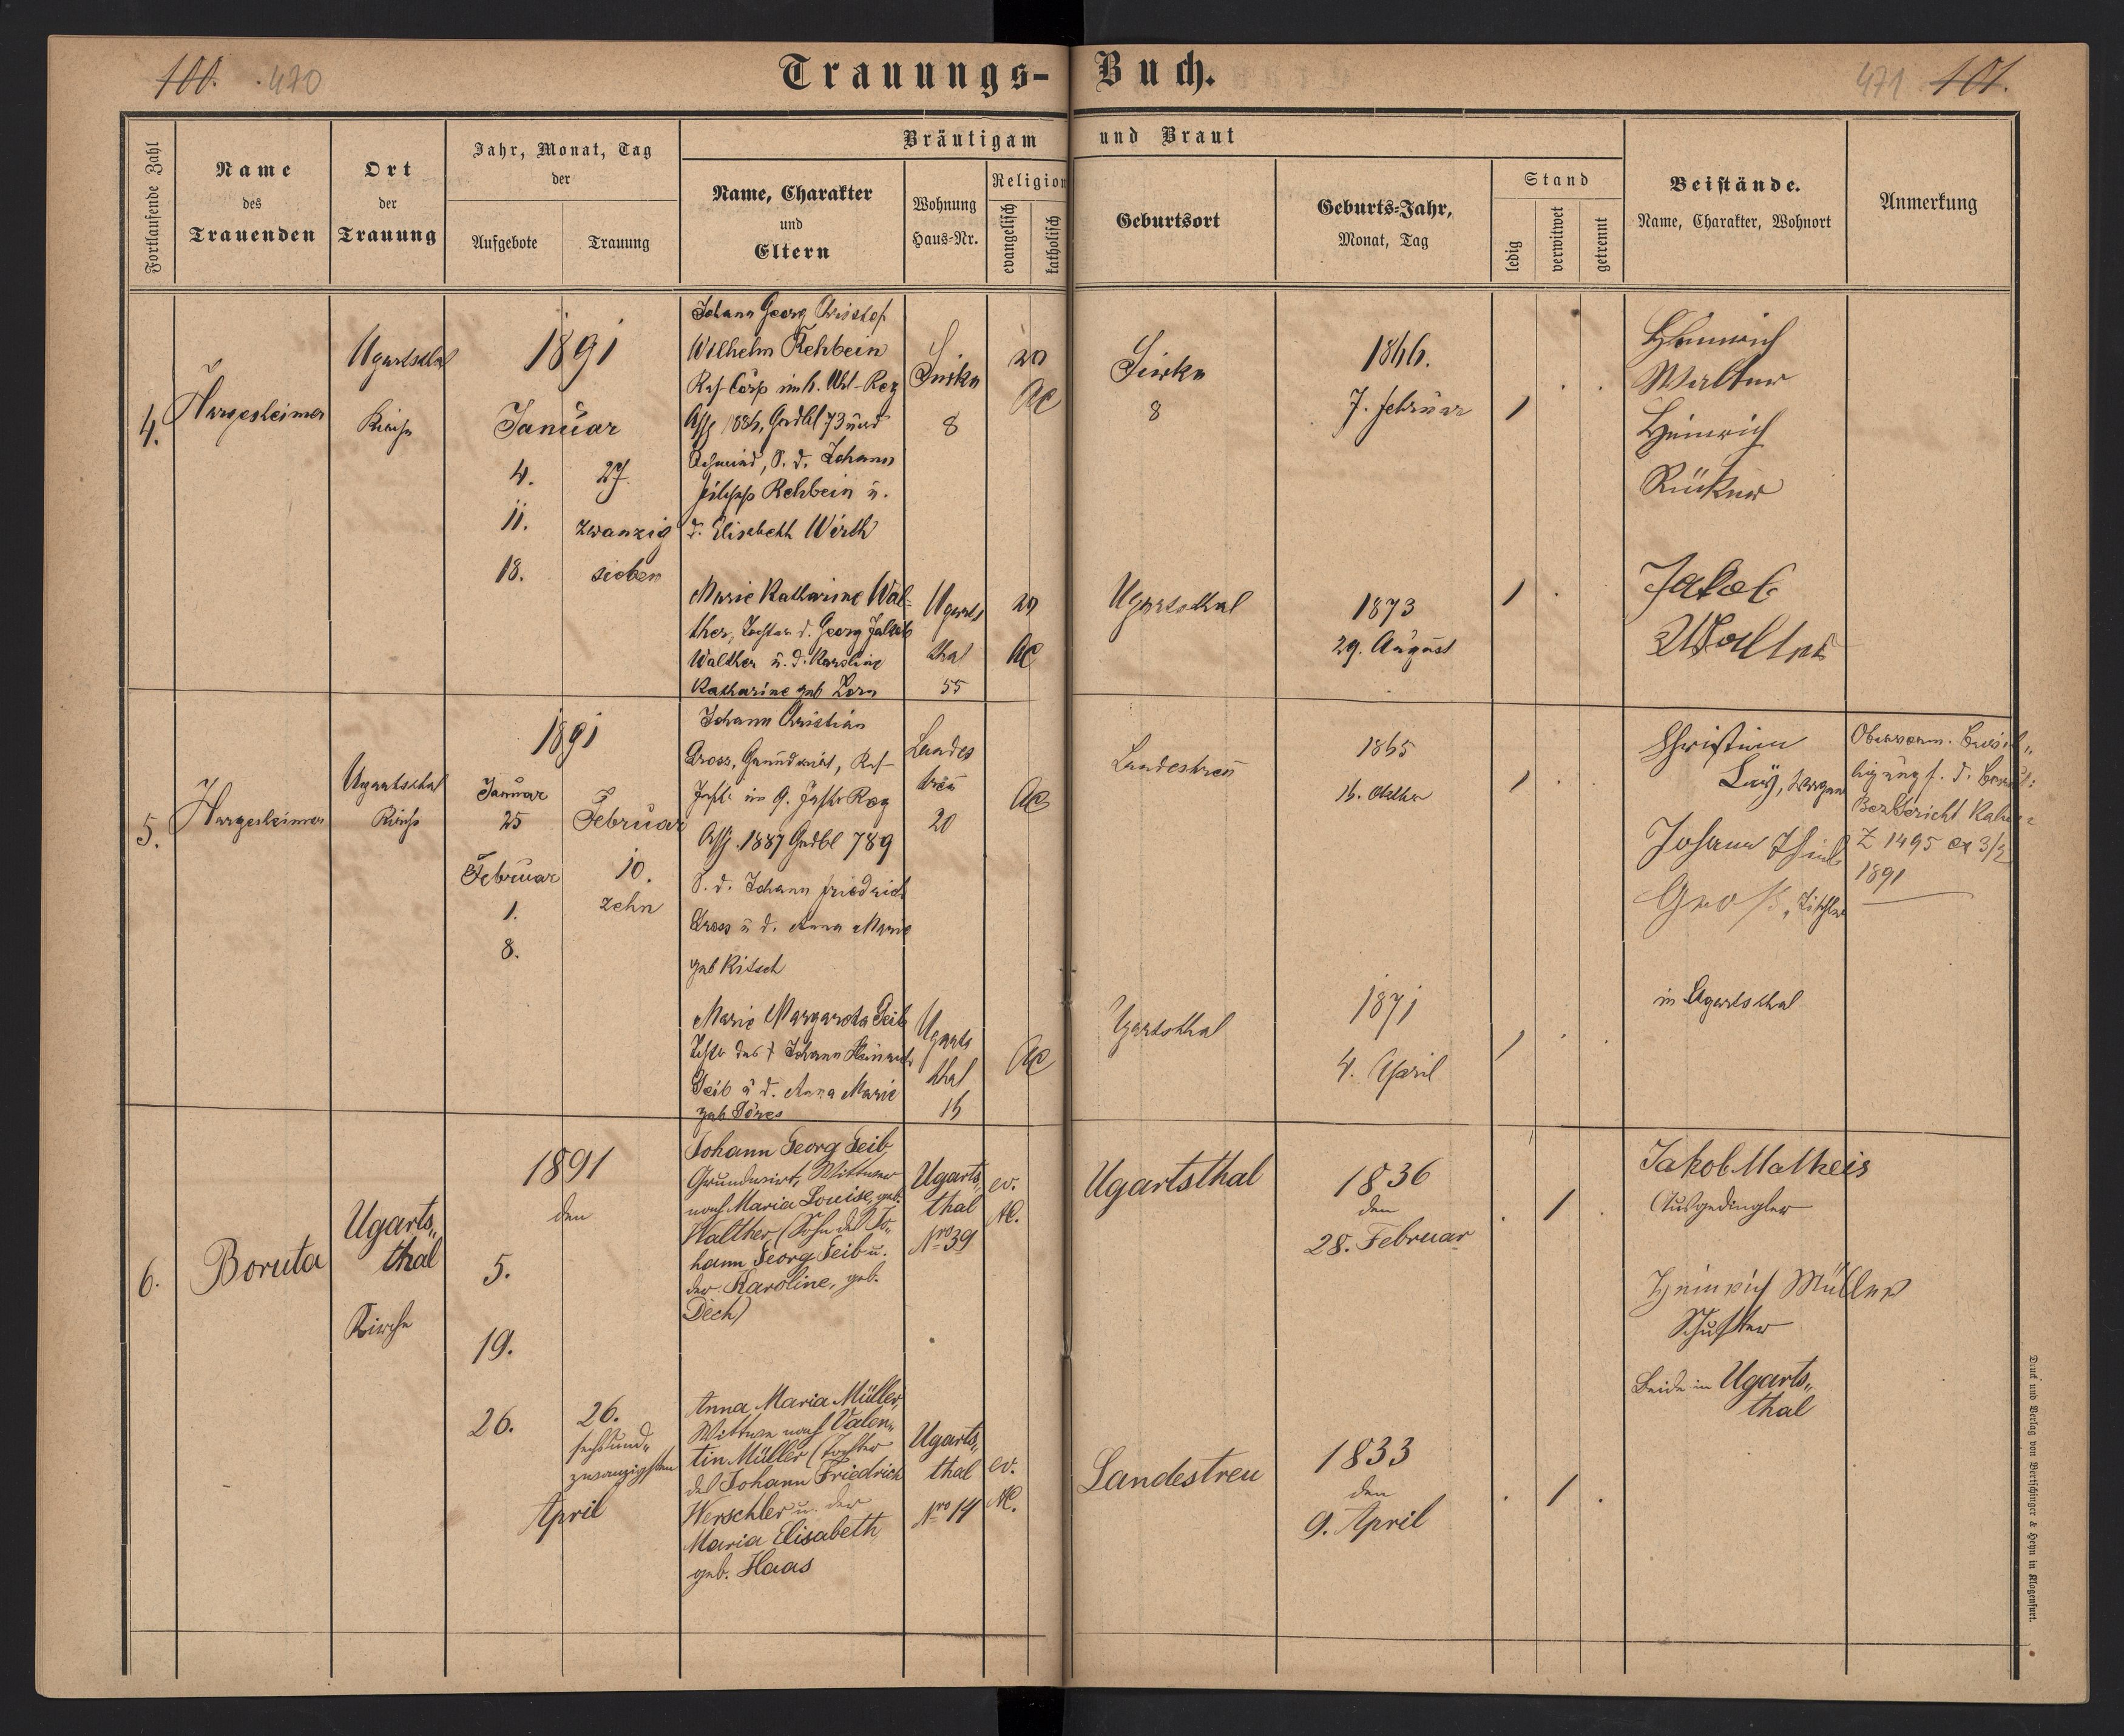 100. 470
Trauungs-Buch.
471 101.
Fortlaufende Zahl
Name
des
Trauenden
Ort
der
Trauung
Jahr, Monat, Tag
der
Aufgebote
Trauung
Bräutigam und Braut
Name, Charakter
und
Eltern
Wohnung
Haus-Nr.
Religion
evangelisch
katholisch
Geburtsort
Geburts-Jahr,
Monat, Tag
Stand
ledig
verwitwet
getrennt
Beistände.
Name, Charakter, Wohnort
Anmerkung
4.
Hargesheimer
Ugartsthal
Kirche
1891
Januar
4.
11.
18.
27.
zwanzig
sieben
Johann Georg
Wilhelm Rehbein
73 und
S. d. Johann
Rehbein u.
d. Elisabeth Wirth
8
AC
8
1866.
7. Februar
1
Heinrich
Walter
Heinrich
Marie Katharine Wal-
ther, Tochter d. Georg Jakob
Walther u. d. Karoline
Katharine geb Zorn
Ugarts
thal
55
AC
Ugartsthal
1873
29. August
1
Jakob
5.
Hargesheimer
Ugartsthal
Kirche
1891
Januar
25
Februar
1.
8.
Februar
10.
zehn
Johann Christian
Gross, Grundwirt,
1887 789
S. d. Johann Friedrich
Gross u d. Anna Marie
geb Ritsch
Landes
treu
20
AC
Landestreu
1865
16. October
1
Christian
Johann
Groß, Tischler
in Ugartsthal
Z 1495 ex 3/2
1891
Marie Margareta Seib
Johann Heinrich
Seib u d. Anna Marie
geb
Ugarts
thal
16
AC
Ugartsthal
1871
4. April
1
6.
Boruta
Ugarts„
thal
Kirche
1891
den
5.
19.
26.
26.
sechsund„
zwanzigsten
April
Johann Georg Seib
Grundwirt, Wittwer
nach Maria Louise, geb.
Walther (Sohn des Jo„
hann Georg Seib u.
der Karoline, geb.
Dech)
Ugarts„
thal
Nro 39
ev.
AC.
Ugartsthal
1836
den
28. Februar
1
Jakob Matheis
Ausgedingler
Heinrich Müller
Schuster
Beide in Ugarts„
thal
Anna Maria Müller,
Wittwe nach Valen„
tin Müller (Tochter
des Johann Friedrich
Werschler u. der
Maria Elisabeth
geb. Haas
Ugarts„
thal
Nro 14
ev.
AC.
Landestreu
1833
den
9. April
1
Druck und Verlag von Bertschinger & Heyn in Klagenfurt.